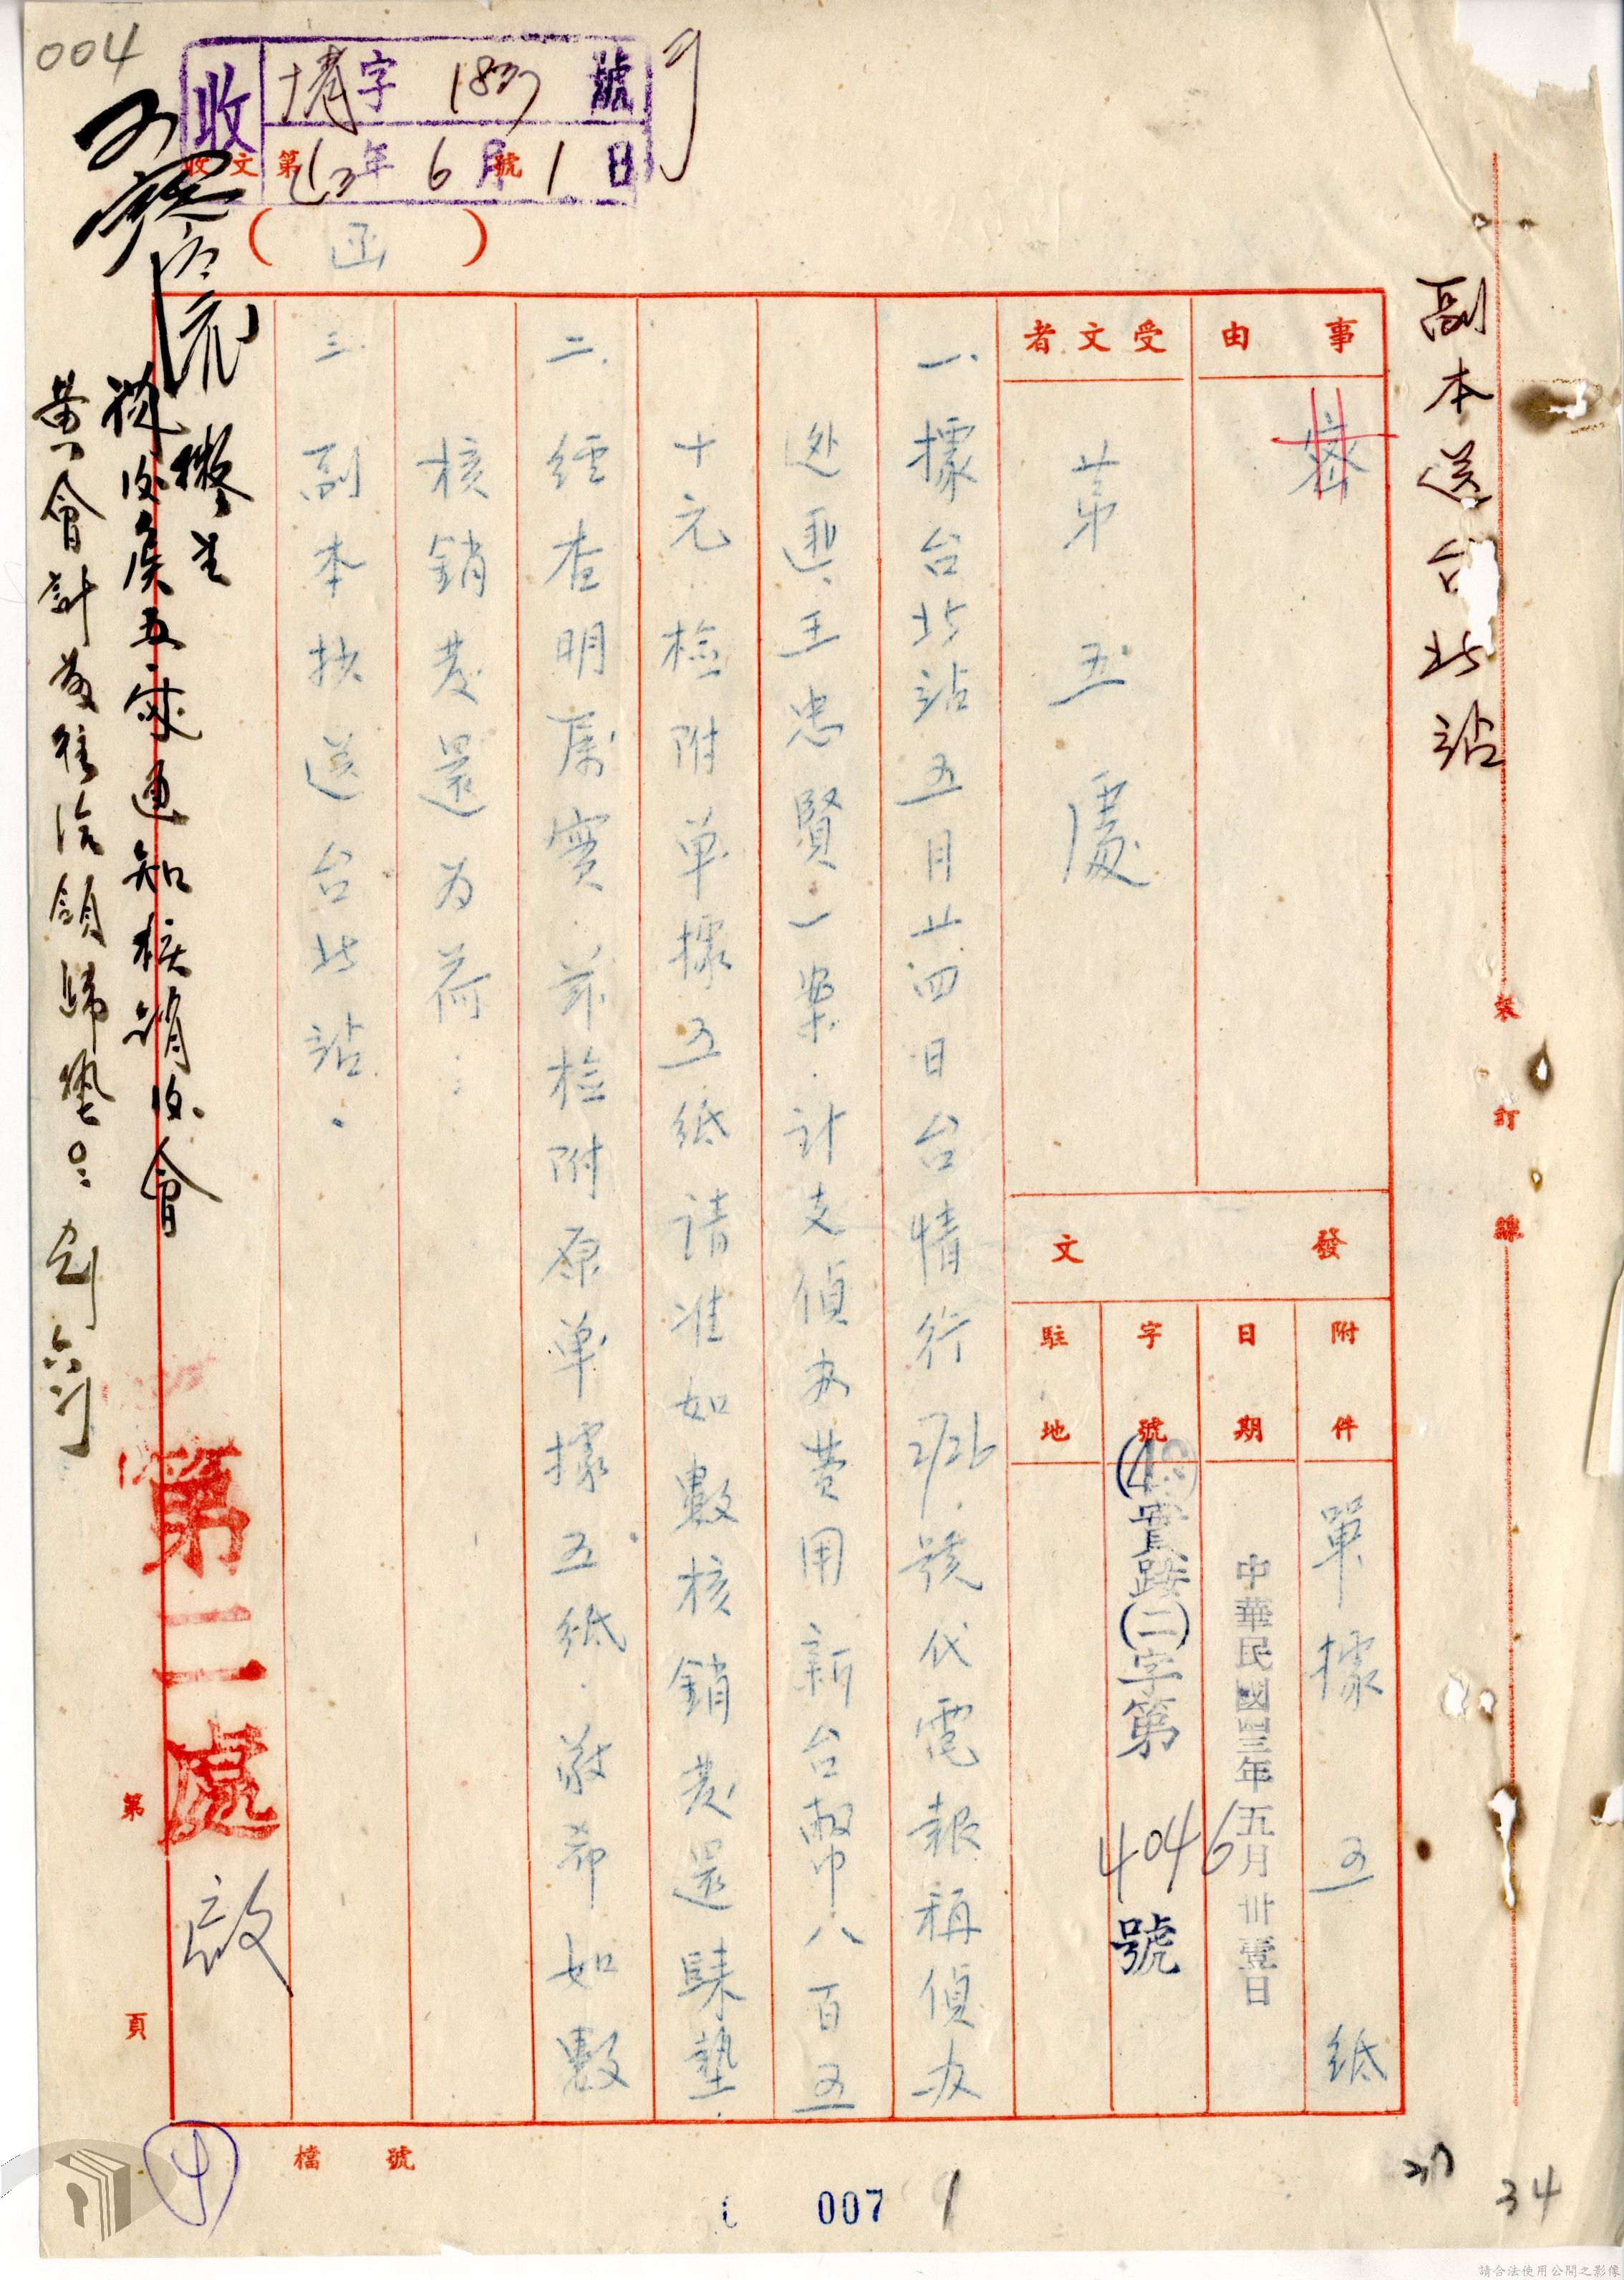 004
收
字 號
年 6 月 1 日
收文第 號
(函)
副本送台北站
裝訂線
事由
密
受文者
第五處
發文
附件
單據五紙
日期
中華民國四三年五月卅壹日
字號
實踐(二)字第4046號
駐地
一、據台北站五月廿四日台情行2726號代電報稱偵办
逃匪王忠賢一案.計支偵办費用新台幣八百五
十元.檢附单據五紙請准如數核銷發還歸墊.
二、經查明屬實.茲檢附原单據五紙.敬希如數
核銷發還为荷:
三、副本抄送台北站.
第二處
啟
通知核銷後會
黃會計
第 頁
檔號
4
007
1
34
請合法使用公開之影像